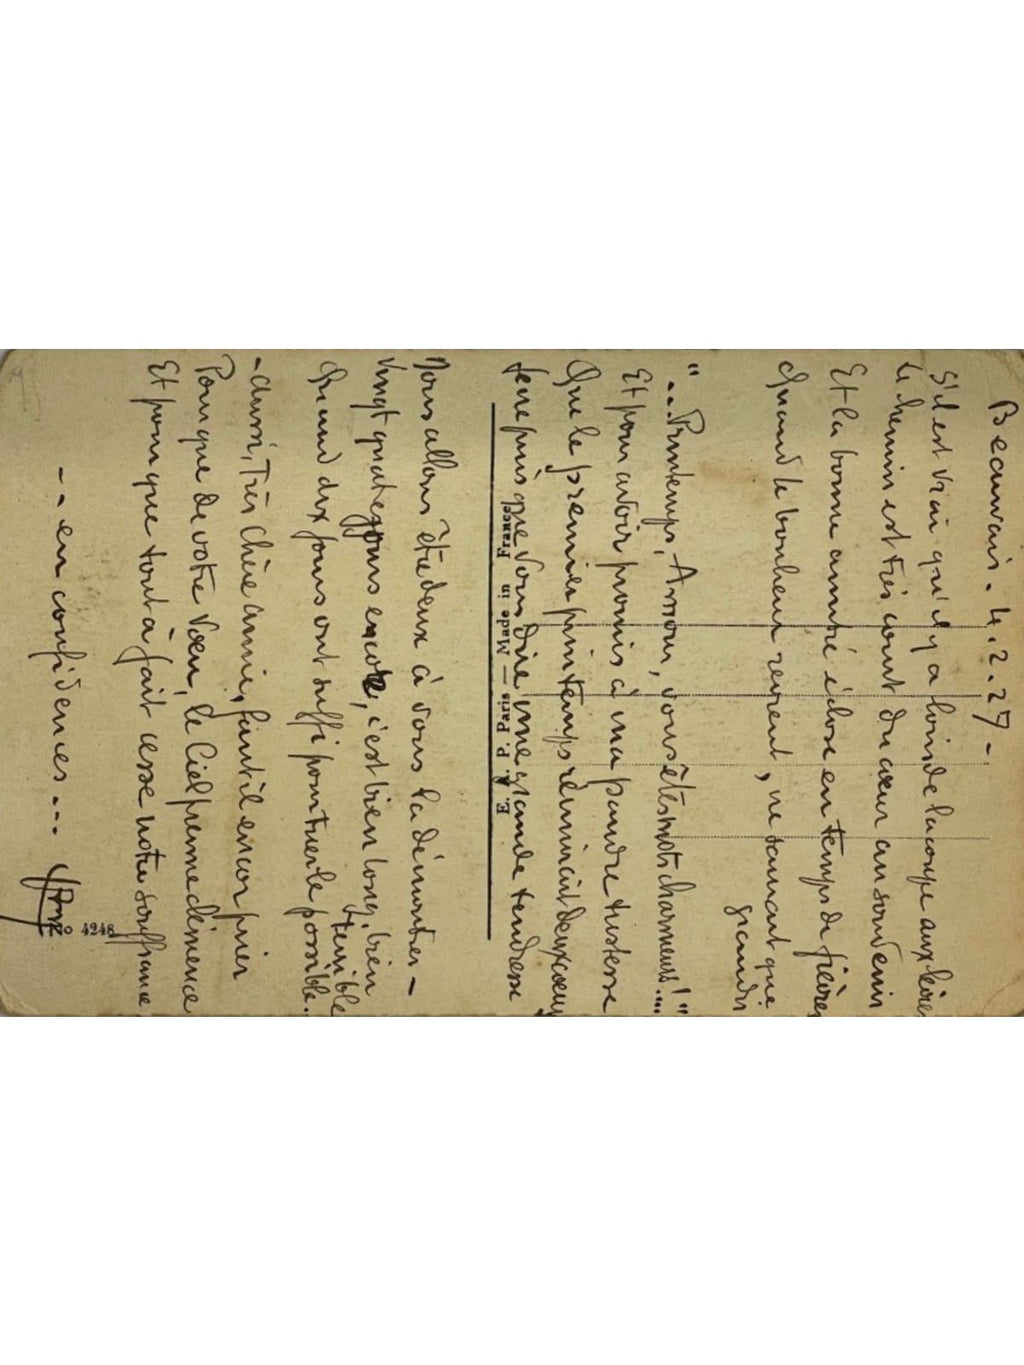 Beauvais. 4.2.27-
S'il est vrai qu'il y a loin de la coupe aux lèvres
Le chemin est très court du cœur au souvenir
Et la bonne amitié éclose en temps de fièvre
Quand le bonheur revient, ne saurait que
grandir
"...Printemps, Amour, vous êtes mots charmeurs!..."
Et pour avoir promis à ma pauvre tristesse
Que le premier printemps réunirait deux cœurs
Je ne puis que vous dire une grande tendresse
E. A. P. Paris — Made in France
Nous allons être deux à vous la démontrer -
Vingt quatre jours encore, c'est bien long, bien
terrible
Quand dix jours ont suffi pour tuer le possible.
- Aussi, Très Chère amie, faut il encor prier
Pour que de votre vœu, le Ciel prenne clémence
Et pour que tout à fait cesse notre souffrance
- .. en confidences ...
No 4248